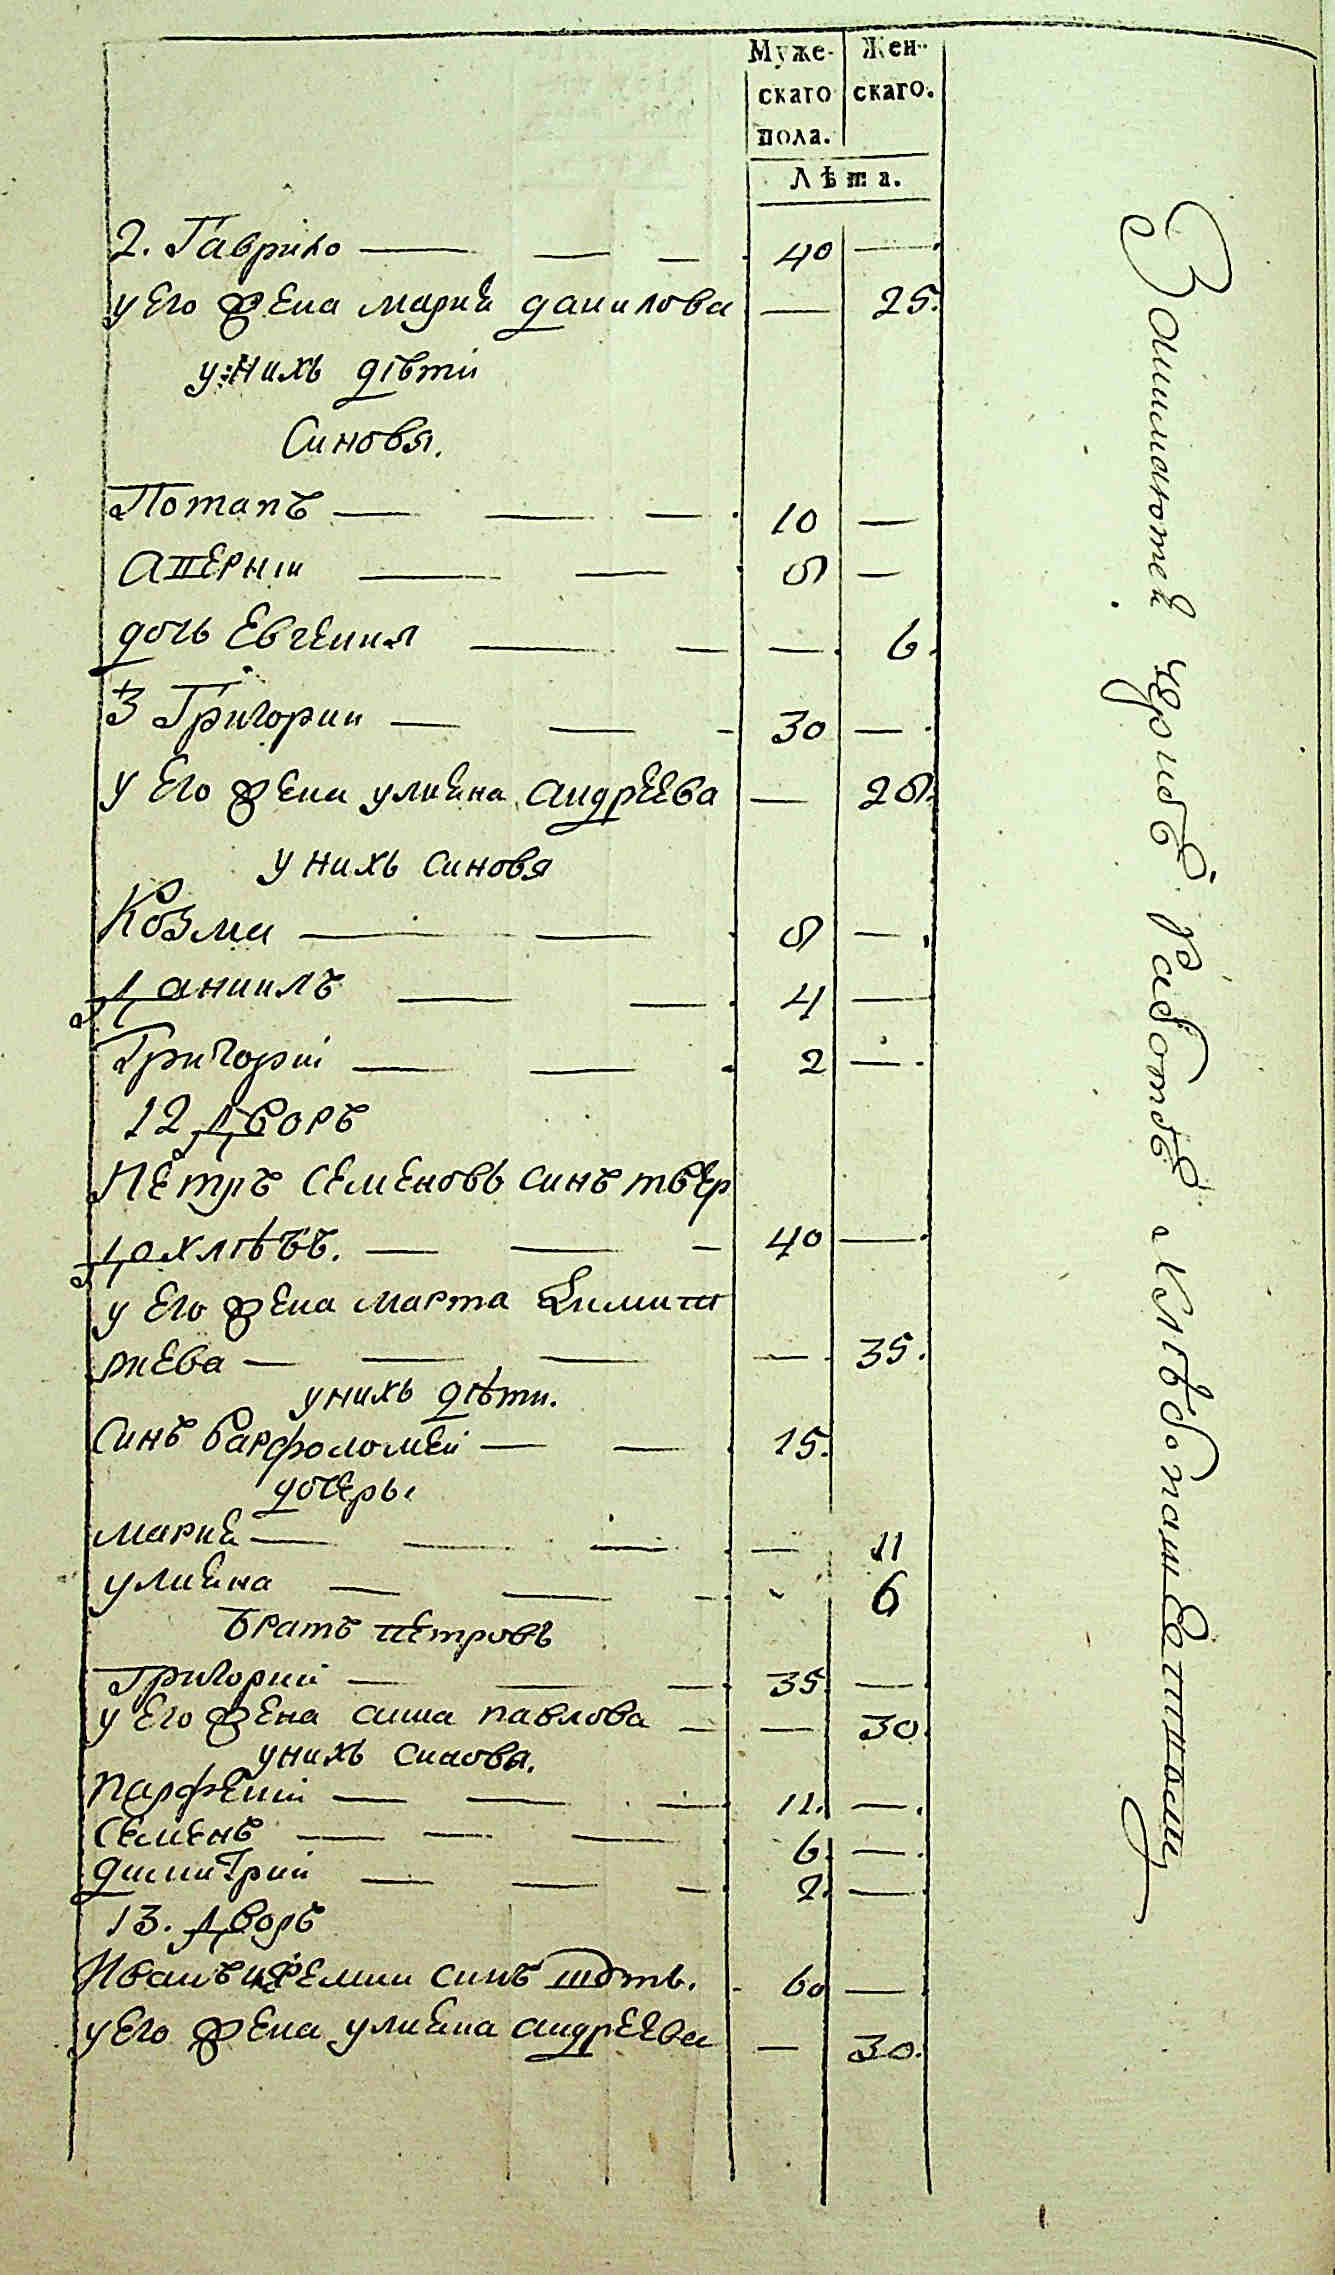 Муже-
скаго
пола.
Жен-
скаго.
Лѣта.
2. Гаврило — — — 40 —
у Его жена мариѣ данилова — 25.
у нихъ дѣти
Синовя.
Потапъ — — — 10 —
— — 8 —
дочь Евгения — — — 6.
3 Григории — — — 30 —
у Его жена улиѣна андрЕЕва — 28.
у нихъ синовя
Козма — — 8 —
Даниилъ — — 4 —
Григорій — — 2 —
12 Дворъ
ПЕтръ СЕмЕновъ синъ твЕр
дохлѣбъ. — — — 40 —
у Его жена марта Димит
риЕва — — — — 35.
у нихъ дѣти.
Синъ Варфоломѣй — — 15.
дочеры
мариѣ — — — — 11
улиѣна — — — 6
братъ пЕтровъ
Григорий — — — 35 —
у Его жЕна павлова — — 30.
у нихъ синовя.
парфЕній — — — —
СЕмЕнъ — — — 6. —
димитрий — — — 2. —
13. Дворъ
Иванъ синъ — 60 —
у Его жена улиѣна андрЕЕва — 30.
Занимаются работѣ хлѣбопашЕством